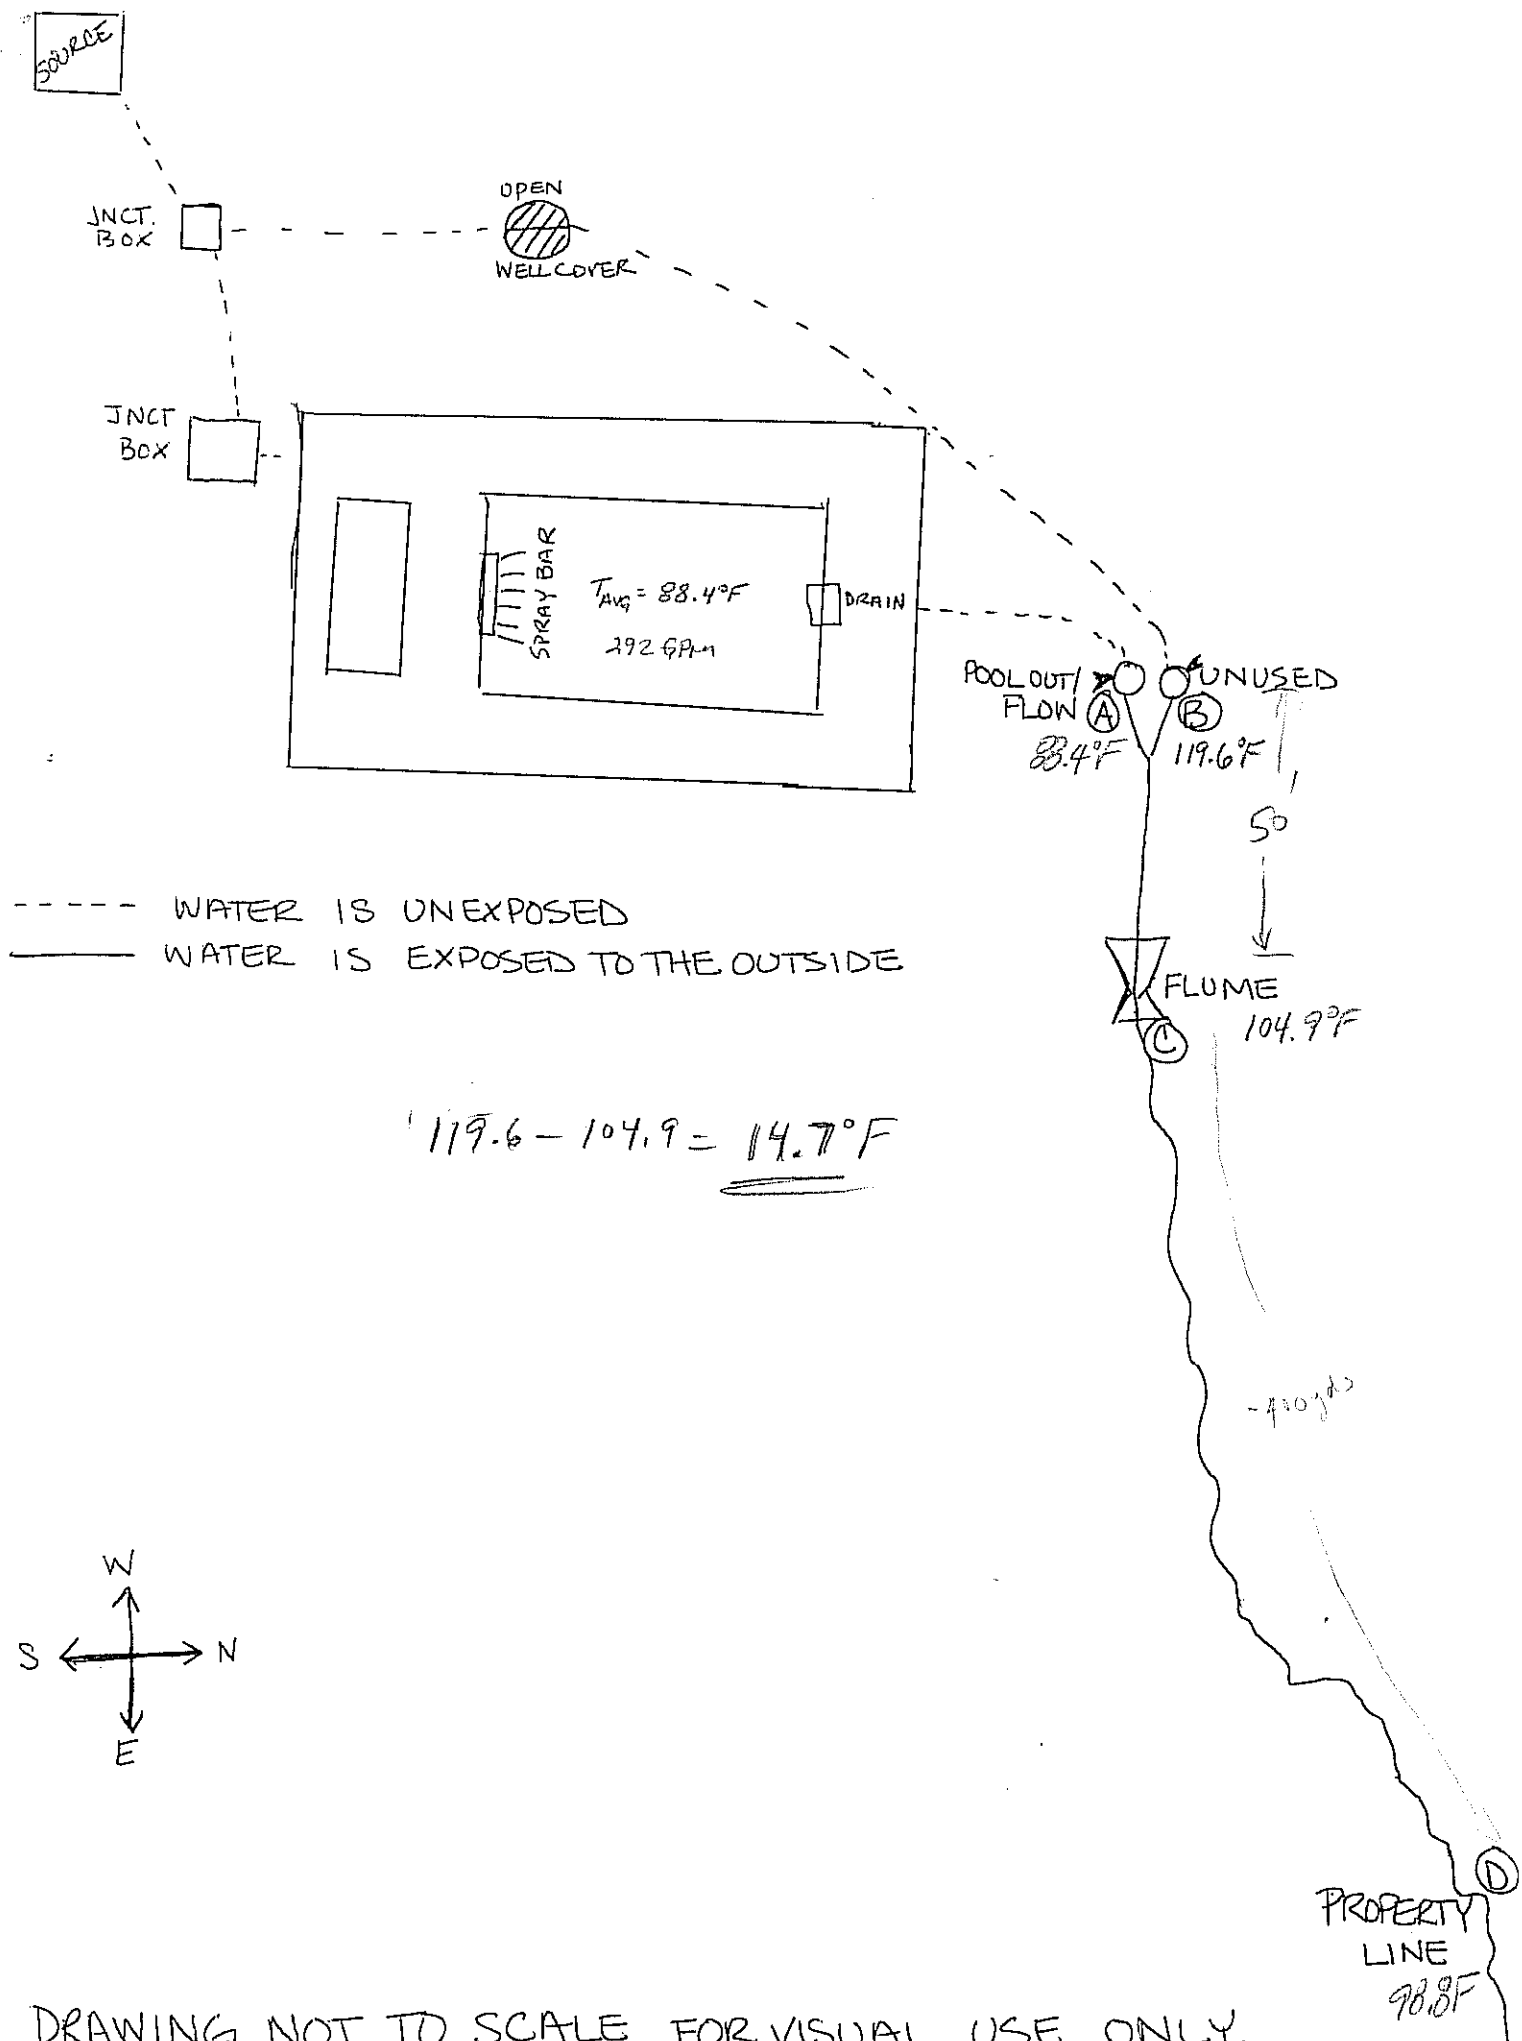 SOURCE
OPEN
JNCT.
BOX
WELL COVER
JNCT
BOX
SPRAY BAR
TAVG = 88.4°F
292 GPM
DRAIN
POOL OUT/
FLOW A
88.4°F
UNUSED
B
119.6°F
50'
---- WATER IS UNEXPOSED
—— WATER IS EXPOSED TO THE OUTSIDE
FLUME
104.9°F
C
119.6 - 104.9 = 14.7°F
W
S N
E
D
PROPERTY
LINE
98.8F
DRAWING NOT TO SCALE FOR VISUAL USE ONLY.